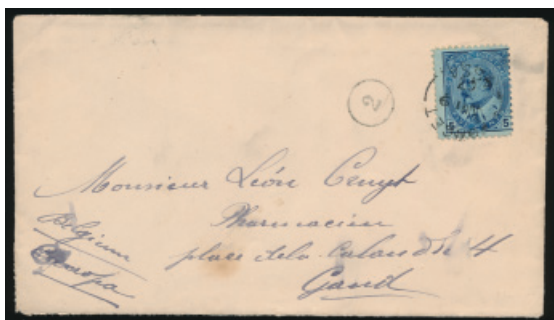 2
5 5
Monsieur Léon
Pharmacien
place de la Calandre 4
Gand
Belgium
Europa